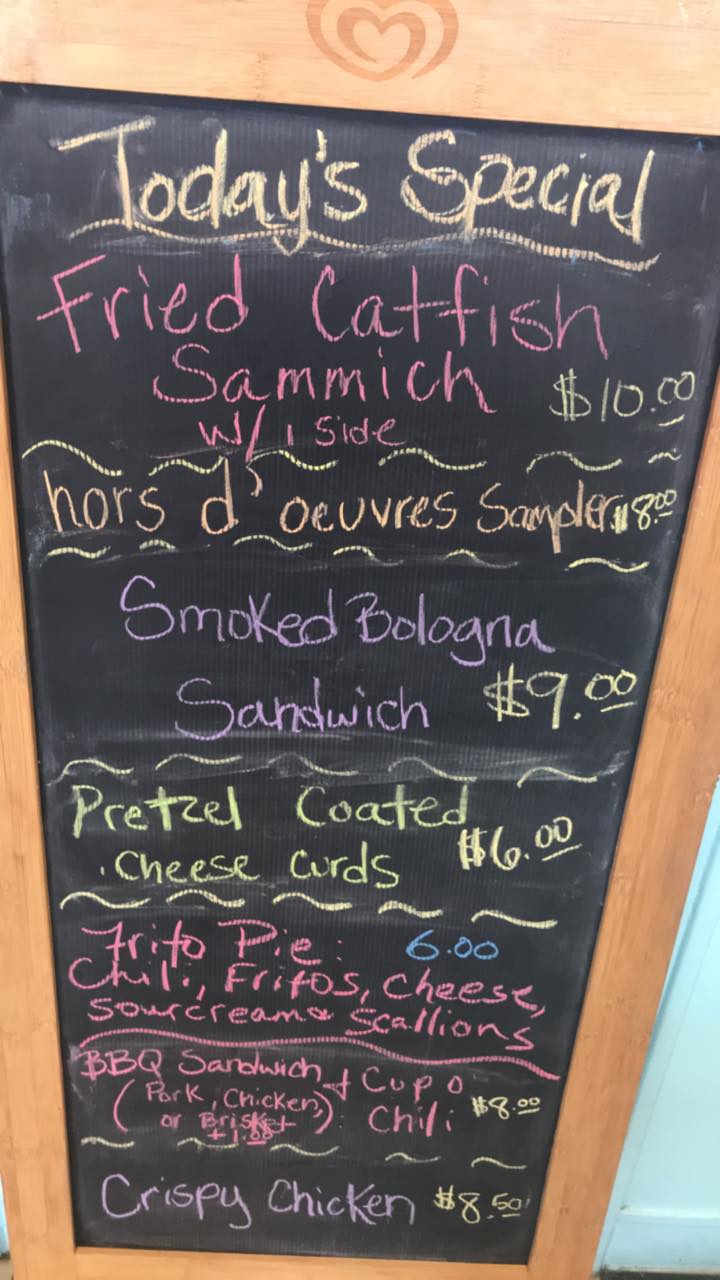 Today's Special
Fried Catfish
Sammich $10.00
w/ 1 side
hors d'oeuvres Sampler $8.00
Smoked Bologna
Sandwich $9.00
Pretzel Coated
Cheese Curds $6.00
Frito Pie: 6.00
Chili, Fritos, Cheese,
sourcream & Scallions
BBQ Sandwich + Cup o
(Pork, Chicken, Chili $8.00
or Brisket)
+1.00
Crispy Chicken $8.50